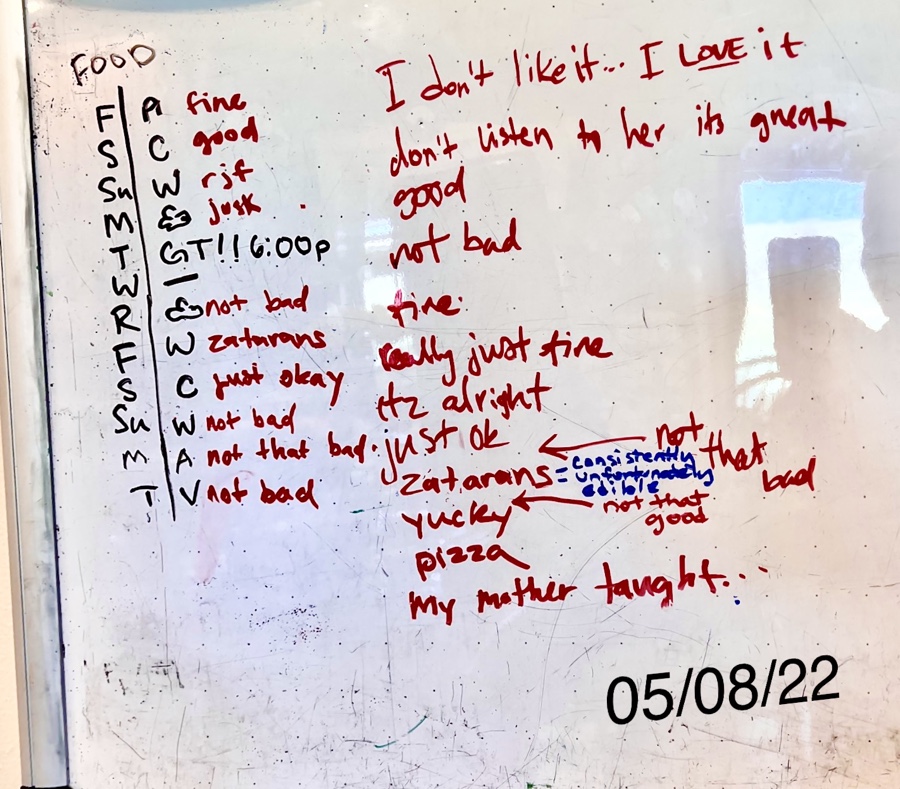 FOOD
F A fine
S C good
Su W rjf
M just
T GT!!6:00p
W —
R not bad
F W zatarans
S C just okay
Su W not bad
M A not that bad.
T V not bad
I don't like it... I LOVE it
don't listen to her its great
good
not bad
fine
really just fine
itz alright
just ok
not that bad
zatarans = consistently
unfortunately
edible
yucky
not that
good
pizza
My mother taught...
05/08/22